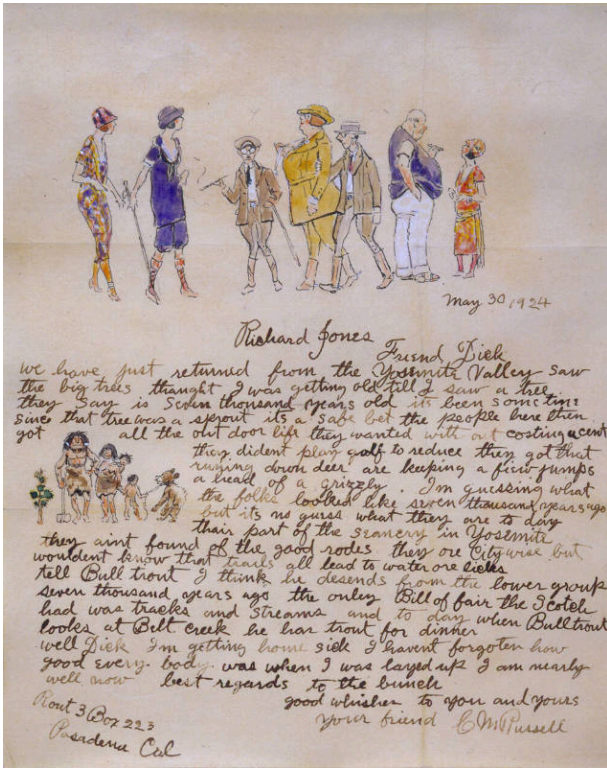 May 30 1924
Richard Jones
Friend Dick
we have just returned from the Yosemite Valley saw
the big trees thaught I was getting old till I saw a tree
they say is seven thousand years old its been sometime
since that tree was a sprout its a safe bet the people here then
got all the out door life they wanted with out costing a cent
they dident play golf to reduce they got that
runing down deer are keeping a fiew jumps
a head of a grizzly. I'm guessing what
the folks looked like seven thousand years ago
but its no guess what they are to day
thair part of the scanery in Yosemite
they aint found of the good rodes they are City wise but
wouldent know that trails all lead to water ore licks
tell Bull trout I think he desends from the lower group
seven thousand years ago the onley Bill of fair the Scotch
had was tracks and streams and to day when Bull trout
looks at Belt creek he has trout for dinner
well Dick I'm getting home sick I havent forgoten how
good every body was when I was layed up I am nearly
well now best regards to the bunch
good whishes to you and yours
your friend C M Russell
Rout 3 Box 223
Pasadena Cal